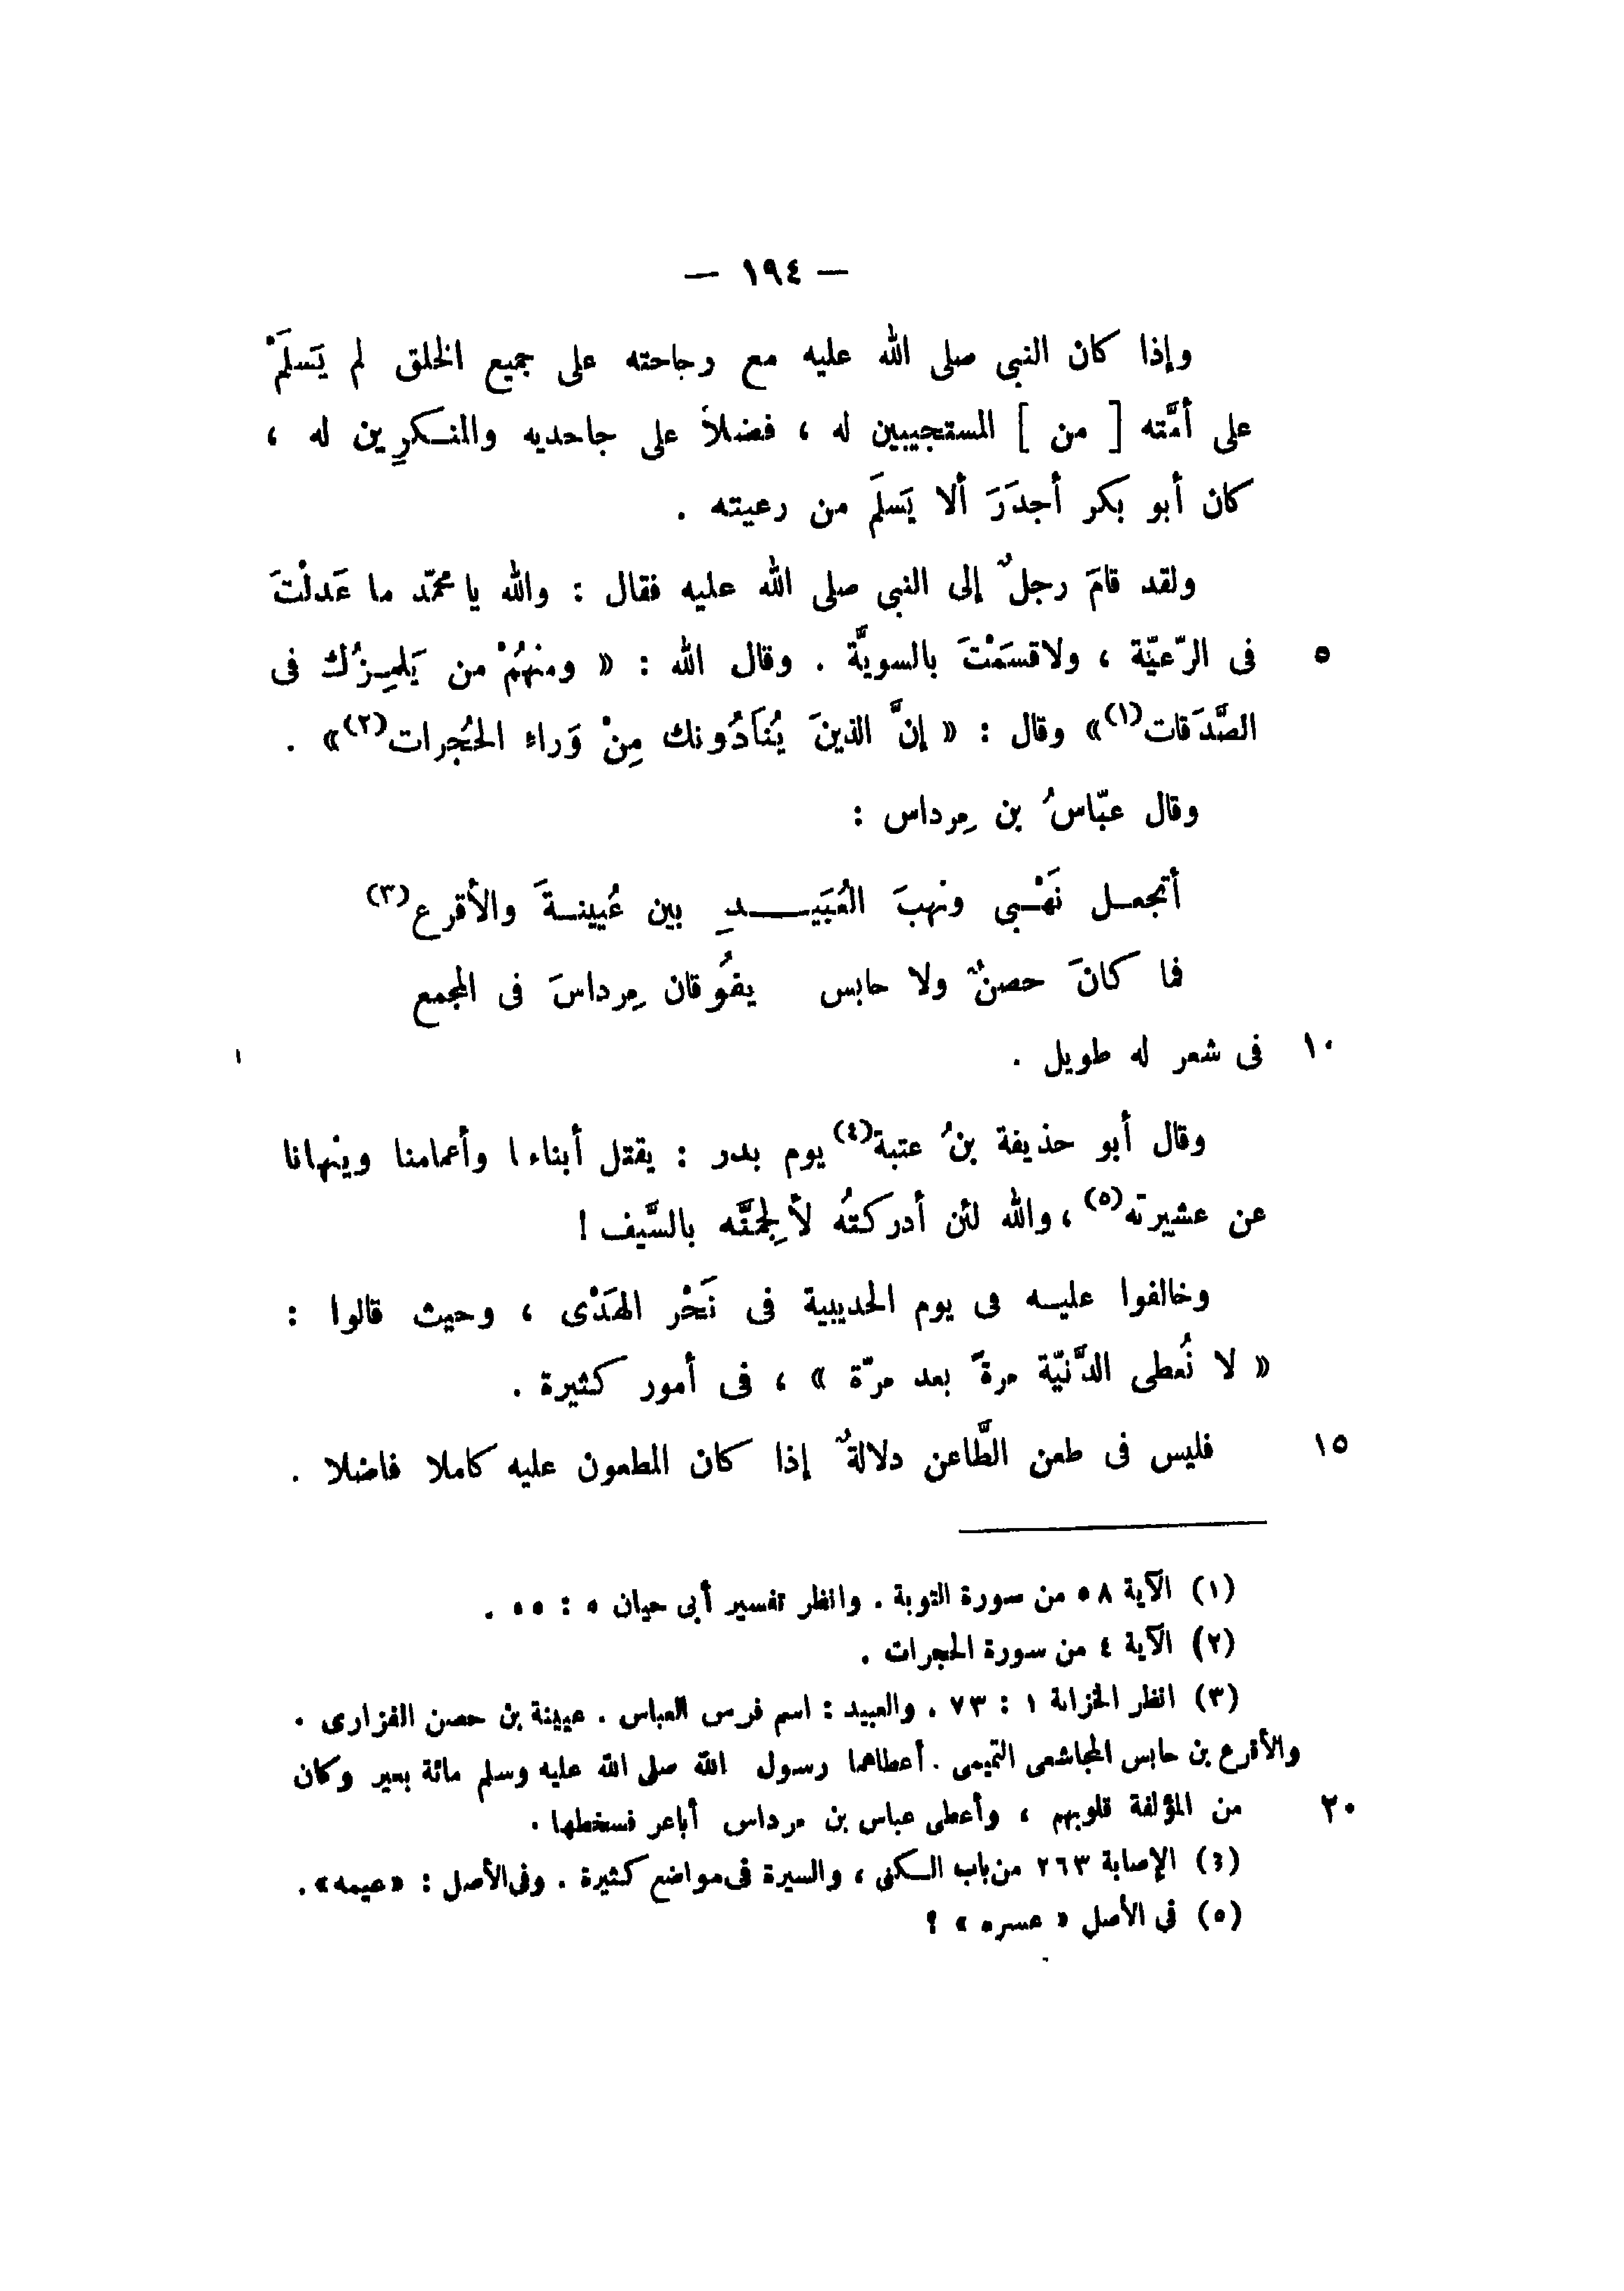 — ١٩٤ —
وإذا كان النبى صلى الله عليه مع رجاحته على جميع الخلق لم يَسلَمْ
على أمَّته [ من ] المستجيبين له ، فضلاً على جاحديه والمنكرِين له ،
كان أبو بَكر أجدَرَ ألا يَسلَمَ من رعيته .
ولقد قامَ رجلٌ إلى النبى صلى الله عليه فقال : والله يا محمّد ما عَدلْتَ
٥ فى الرّعيّة ، ولا قسَمْتَ بالسويَّة . وقال الله : « ومنهُمْ من يَلمِزُك فى
الصَّدَقات(١)» وقال : « إنَّ الذينَ يُنَادُونك مِنْ وَراء الحُجرات(٢)» .
وقال عبّاسُ بن مِرداس :
أتجعل نَهْبى ونهبَ العُبَيدِ بين عُيينةَ والأقرع(٣)
فما كانَ حصنٌ ولا حابس يفُوقان مِرداسَ فى المجمع
١٠ فى شعر له طويل .
وقال أبو حذيفة بنُ عتبة(٤) يوم بدر : يقتل أبناءنا وأعمامنا وينهانا
عن عشيرته(٥) ، والله لئن أدركتُه لألجِمَنَّه بالسَّيف !
وخالفوا عليه فى يوم الحديبية فى نَحْر الهَدْى ، وحيث قالوا :
« لا نُعطى الدَّنيّة مرةً بعد مرّة » ، فى أمور كثيرة .
١٥ فليس فى طعن الطَّاعن دلالةٌ إذا كان المطعون عليه كاملا فاضلا .
(١) الآية ٥٨ من سورة التوبة . وانظر تفسير أبى حيان ٥ : ٥٥ .
(٢) الآية ٤ من سورة الحجرات .
(٣) انظر الخزانة ١ : ٧٣ . والعبيد : اسم فرس العباس . عيينة بن حصن الفزارى .
والأقرع بن حابس المجاشعى التميمى . أعطاهما رسول الله صلى الله عليه وسلم مائة بعير وكان
٢٠ من المؤلفة قلوبهم ، وأعطى عباس بن مرداس أباعر فسخطها .
(٤) الإصابة ٢٦٣ من باب الكنى ، والسيرة فى مواضع كثيرة . وفى الأصل : «عيمه» .
(٥) فى الأصل « عسره » ؟